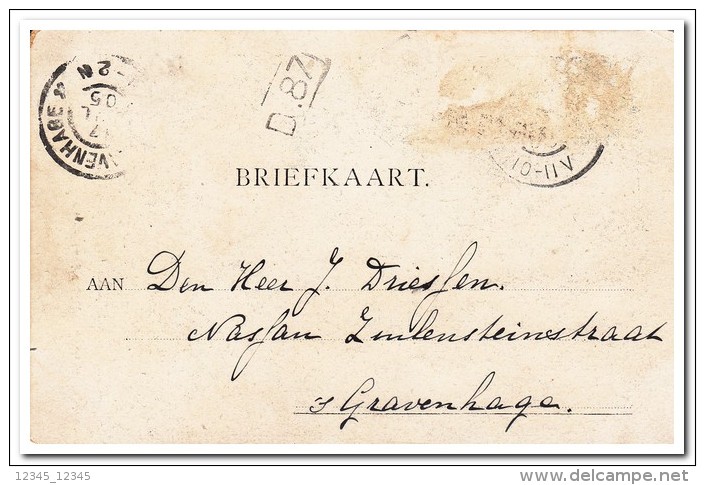 VENHAGE
2-N
05
17
D.87
10-11V
BRIEFKAART.
AAN Den Heer J. Driessen.
Nassau Zuilensteinstraat
's Gravenhage.
12345_12345
delcampe.net